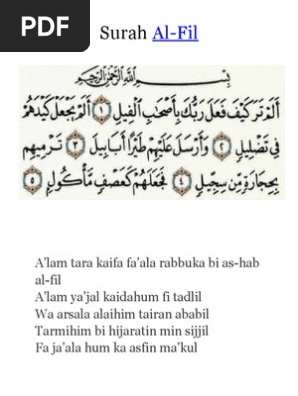 PDF
Surah Al-Fil
بِسْمِ اللَّهِ الرَّحْمَٰنِ الرَّحِيمِ
أَلَمْ تَرَ كَيْفَ فَعَلَ رَبُّكَ بِأَصْحَابِ الْفِيلِ ١ أَلَمْ يَجْعَلْ كَيْدَهُمْ
فِي تَضْلِيلٍ ٢ وَأَرْسَلَ عَلَيْهِمْ طَيْرًا أَبَابِيلَ ٣ تَرْمِيهِم
بِحِجَارَةٍ مِّن سِجِّيلٍ ٤ فَجَعَلَهُمْ كَعَصْفٍ مَّأْكُولٍ ٥
A'lam tara kaifa fa'ala rabbuka bi as-hab
al-fil
A'lam ya'jal kaidahum fi tadlil
Wa arsala alaihim tairan ababil
Tarmihim bi hijaratin min sijjil
Fa ja'ala hum ka asfin ma'kul